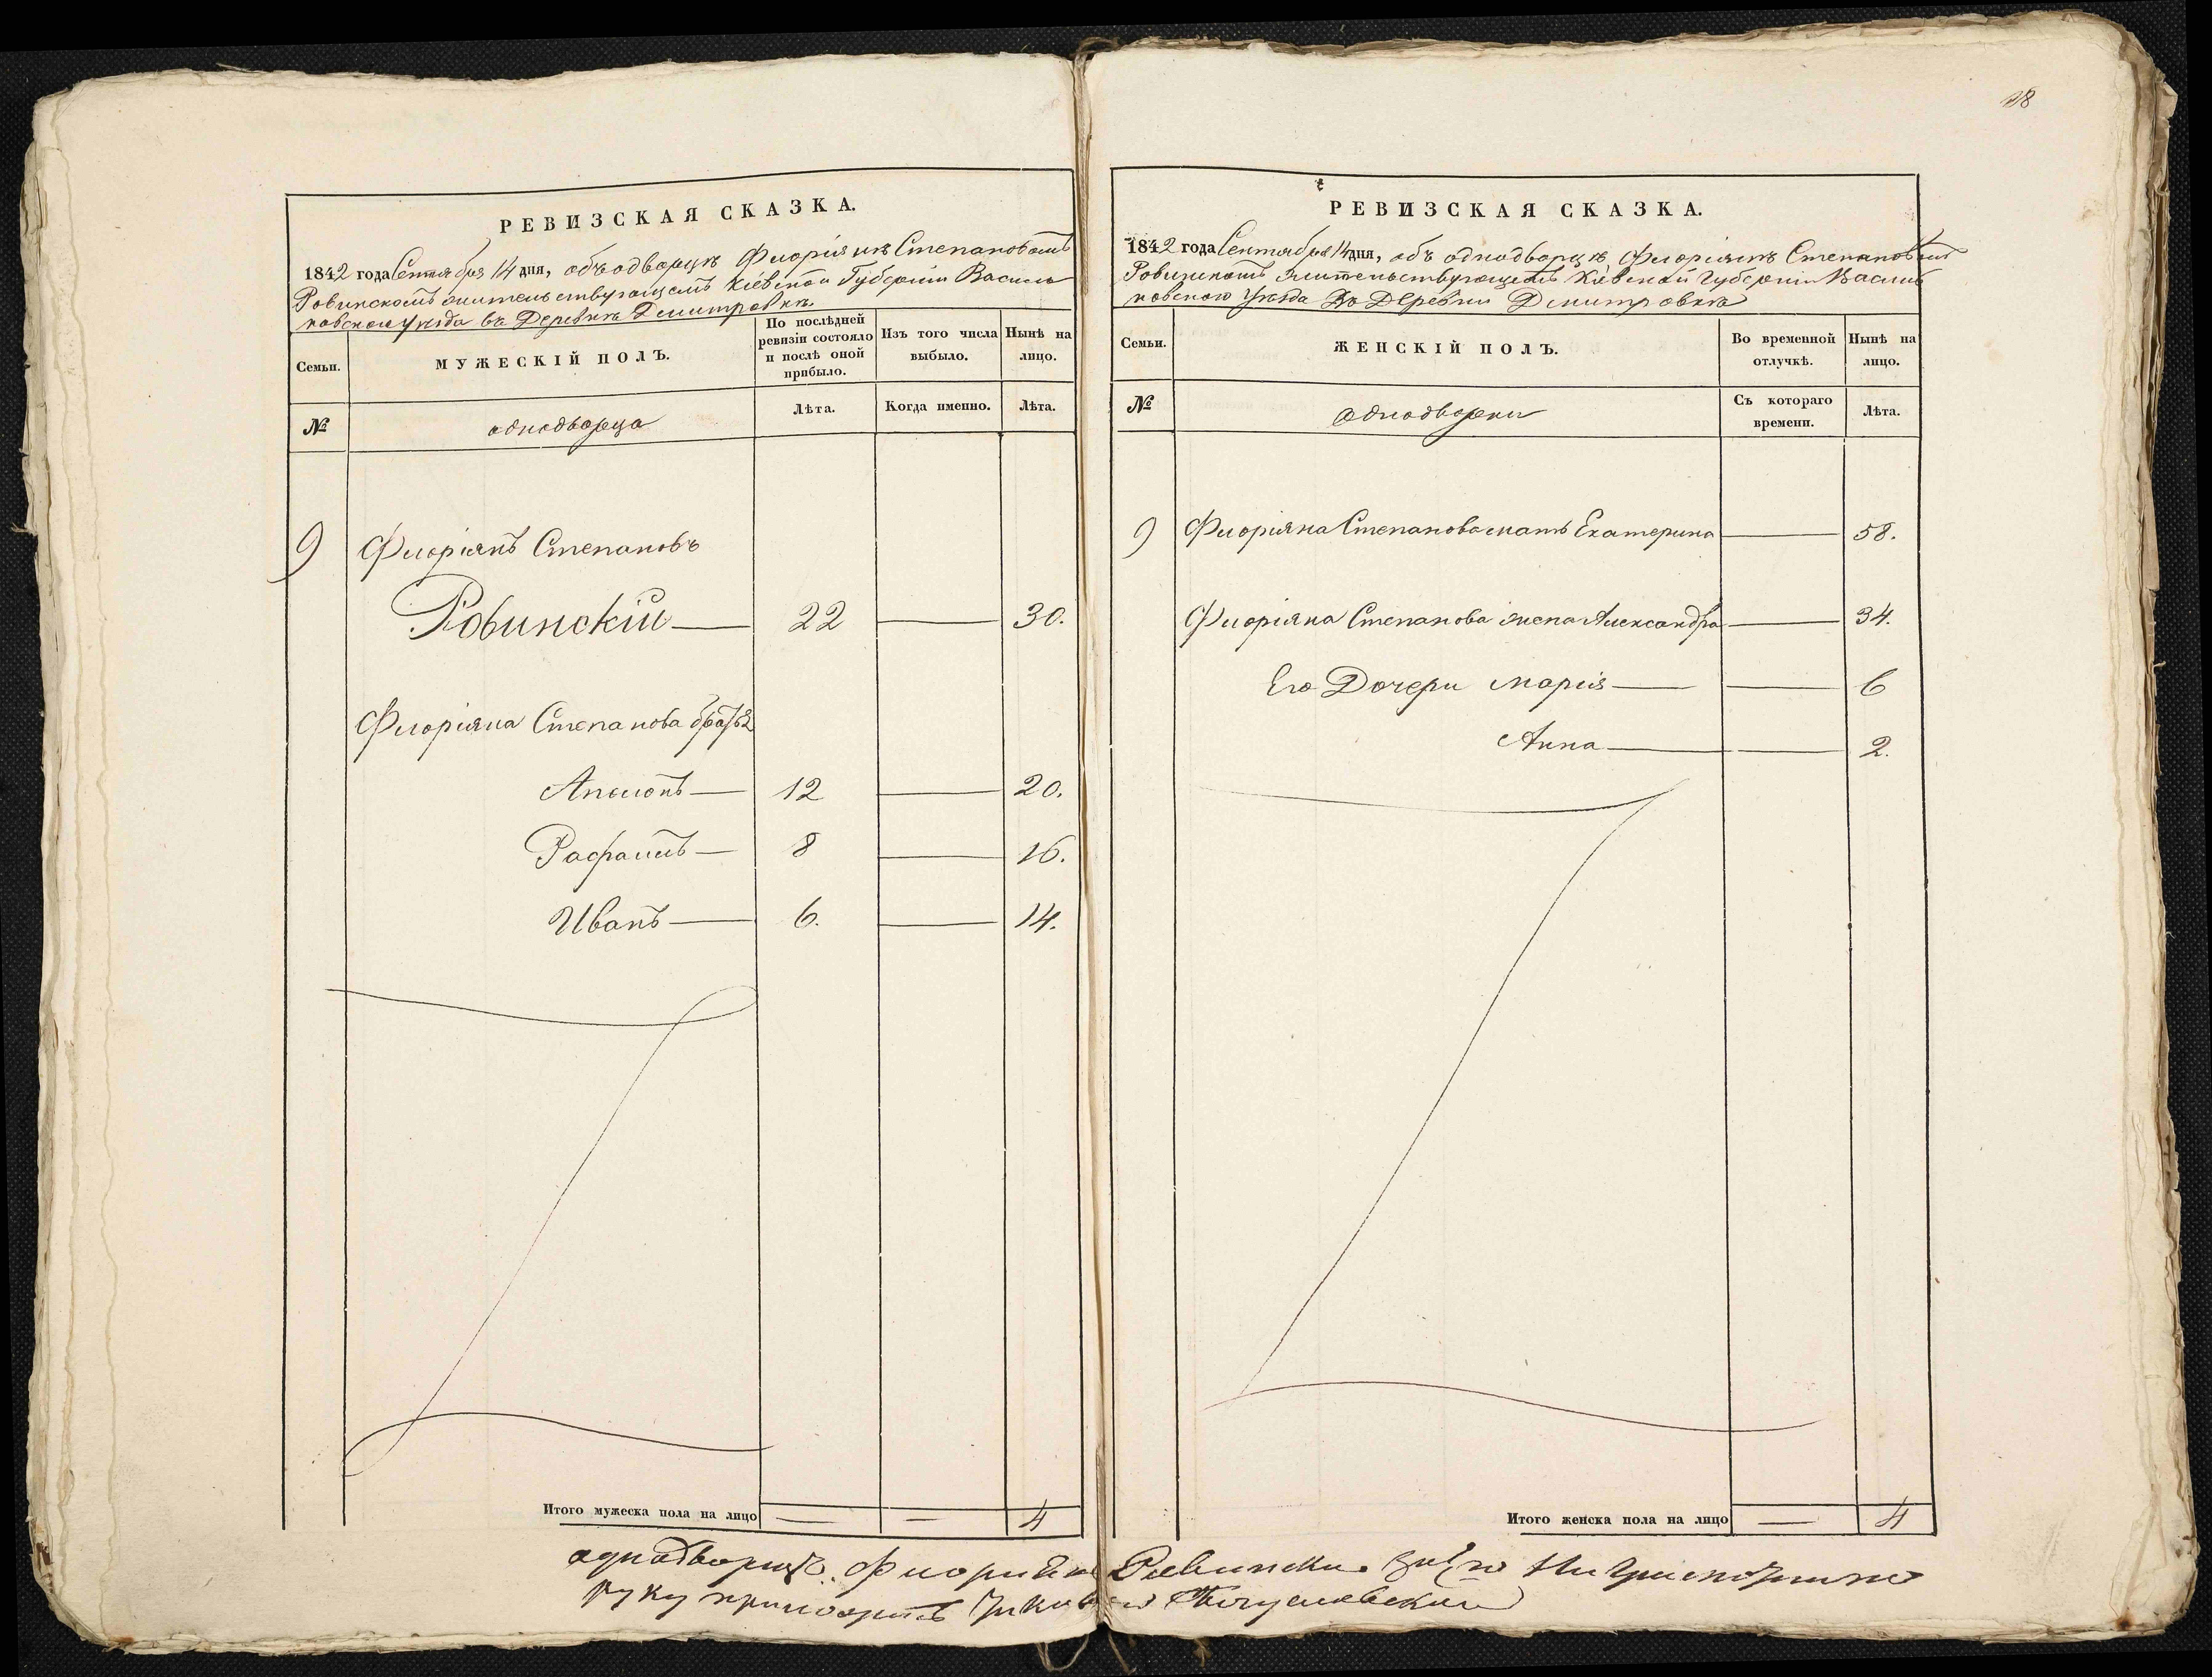 РЕВИЗСКАЯ СКАЗКА.
1842 года Сентября 14 дня, объ однодворцѣ Флоріянѣ Степановомъ
Ровинскомъ жительствующемъ Кіевской Губерніи Василь
ковского уѣзда въ Деревнѣ Дмитровкѣ
Семьи.
МУЖЕСКІЙ ПОЛЪ.
По послѣдней ревизіи состояло и послѣ оной прибыло.
Изъ того числа выбыло.
Нынѣ на лицо.
№
однодворца
Лѣта.
Когда именно.
Лѣта.
9 Флоріянъ Степановъ
Ровинскій — 22 — 30.
Флоріяна Степанова братья
Аполонъ — 12 — 20.
Рафаилъ — 8 — 16.
Иванъ — 6. — 14.
Итого мужеска пола на лицо — — 4
18
РЕВИЗСКАЯ СКАЗКА.
1842 года Сентября 14 дня, объ однодворцѣ Флоріянѣ Степановомъ
Ровинскомъ жительствующемъ Кіевской Губерніи Василь
ковского уѣзда Въ Деревни Дмитровкѣ
Семьи.
ЖЕНСКІЙ ПОЛЪ.
Во временной отлучкѣ.
Нынѣ на лицо.
№
однодворки
Съ котораго времени.
Лѣта.
9 Флоріяна Степанова мать Екатерина — 58.
Флоріяна Степанова жена Александра — 34.
Его Дочери Марія — — 6
Анна — — 2.
Итого женска пола на лицо — 4
Ровински
руку приложилъ